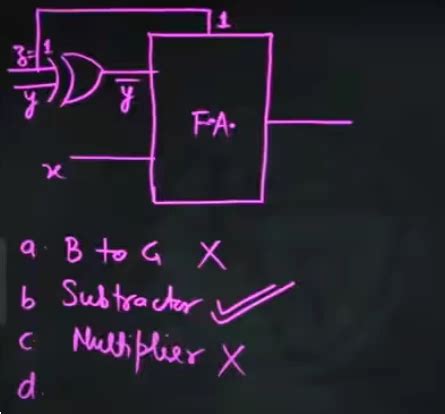 1
z=1
y
y̅
F.A.
x
a. B to G X
b Subtractor ✓
c Multiplier X
d.